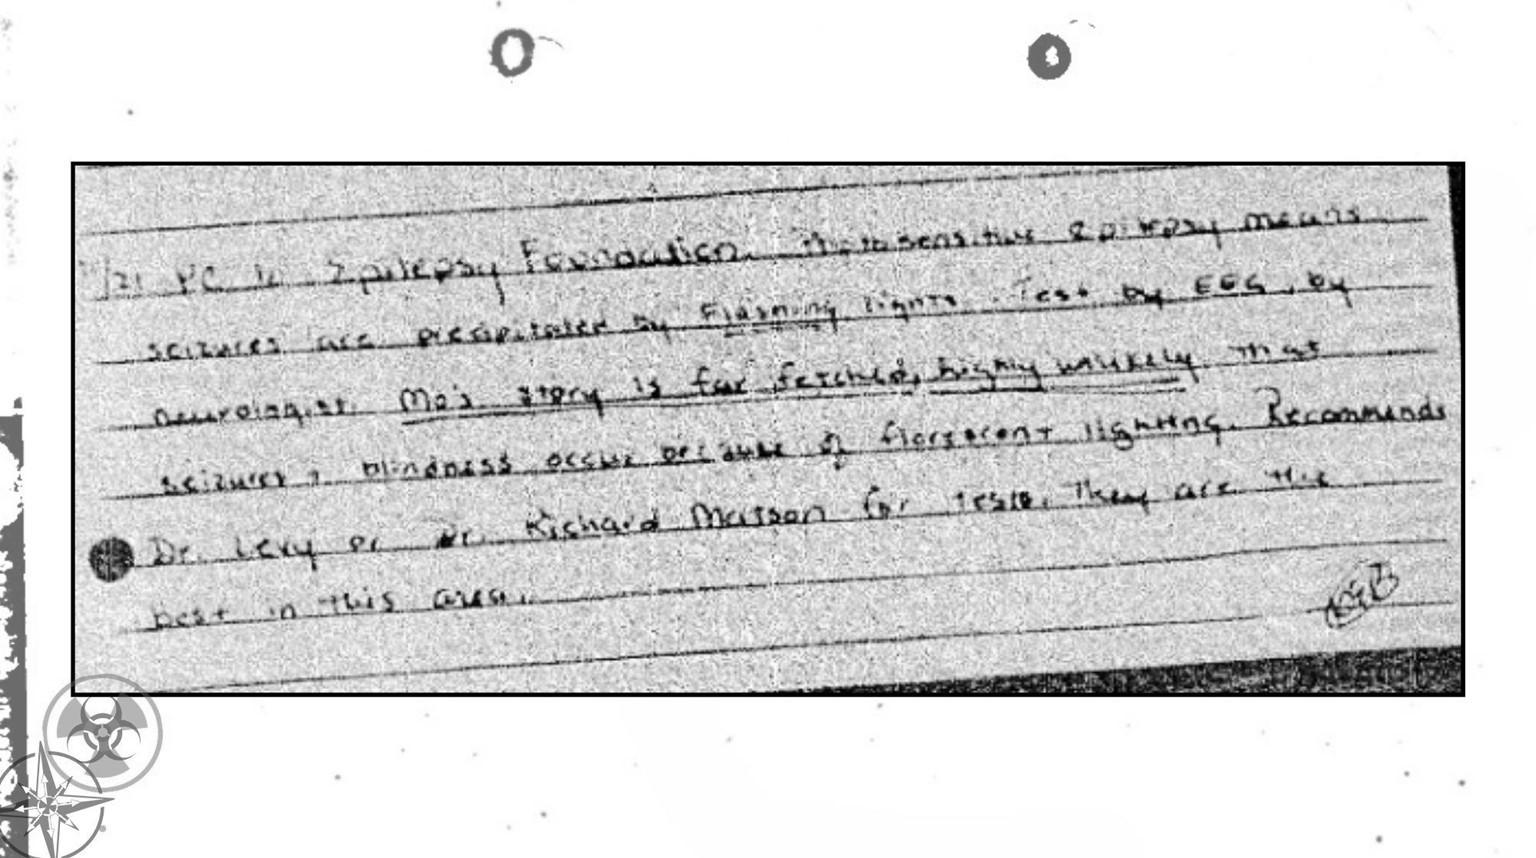 /21 PC to Epilepsy Foundation. Photosensitive epilepsy means
seizures are precipitated by flashing lights. Test by EEG, by
neurologist. Mo's story is far fetched, highly unlikely that
seizures + blindness occur because of florescent lighting. Recommends
Dr. Levy or Dr. Richard Matson for tests. They are the
best in this area.